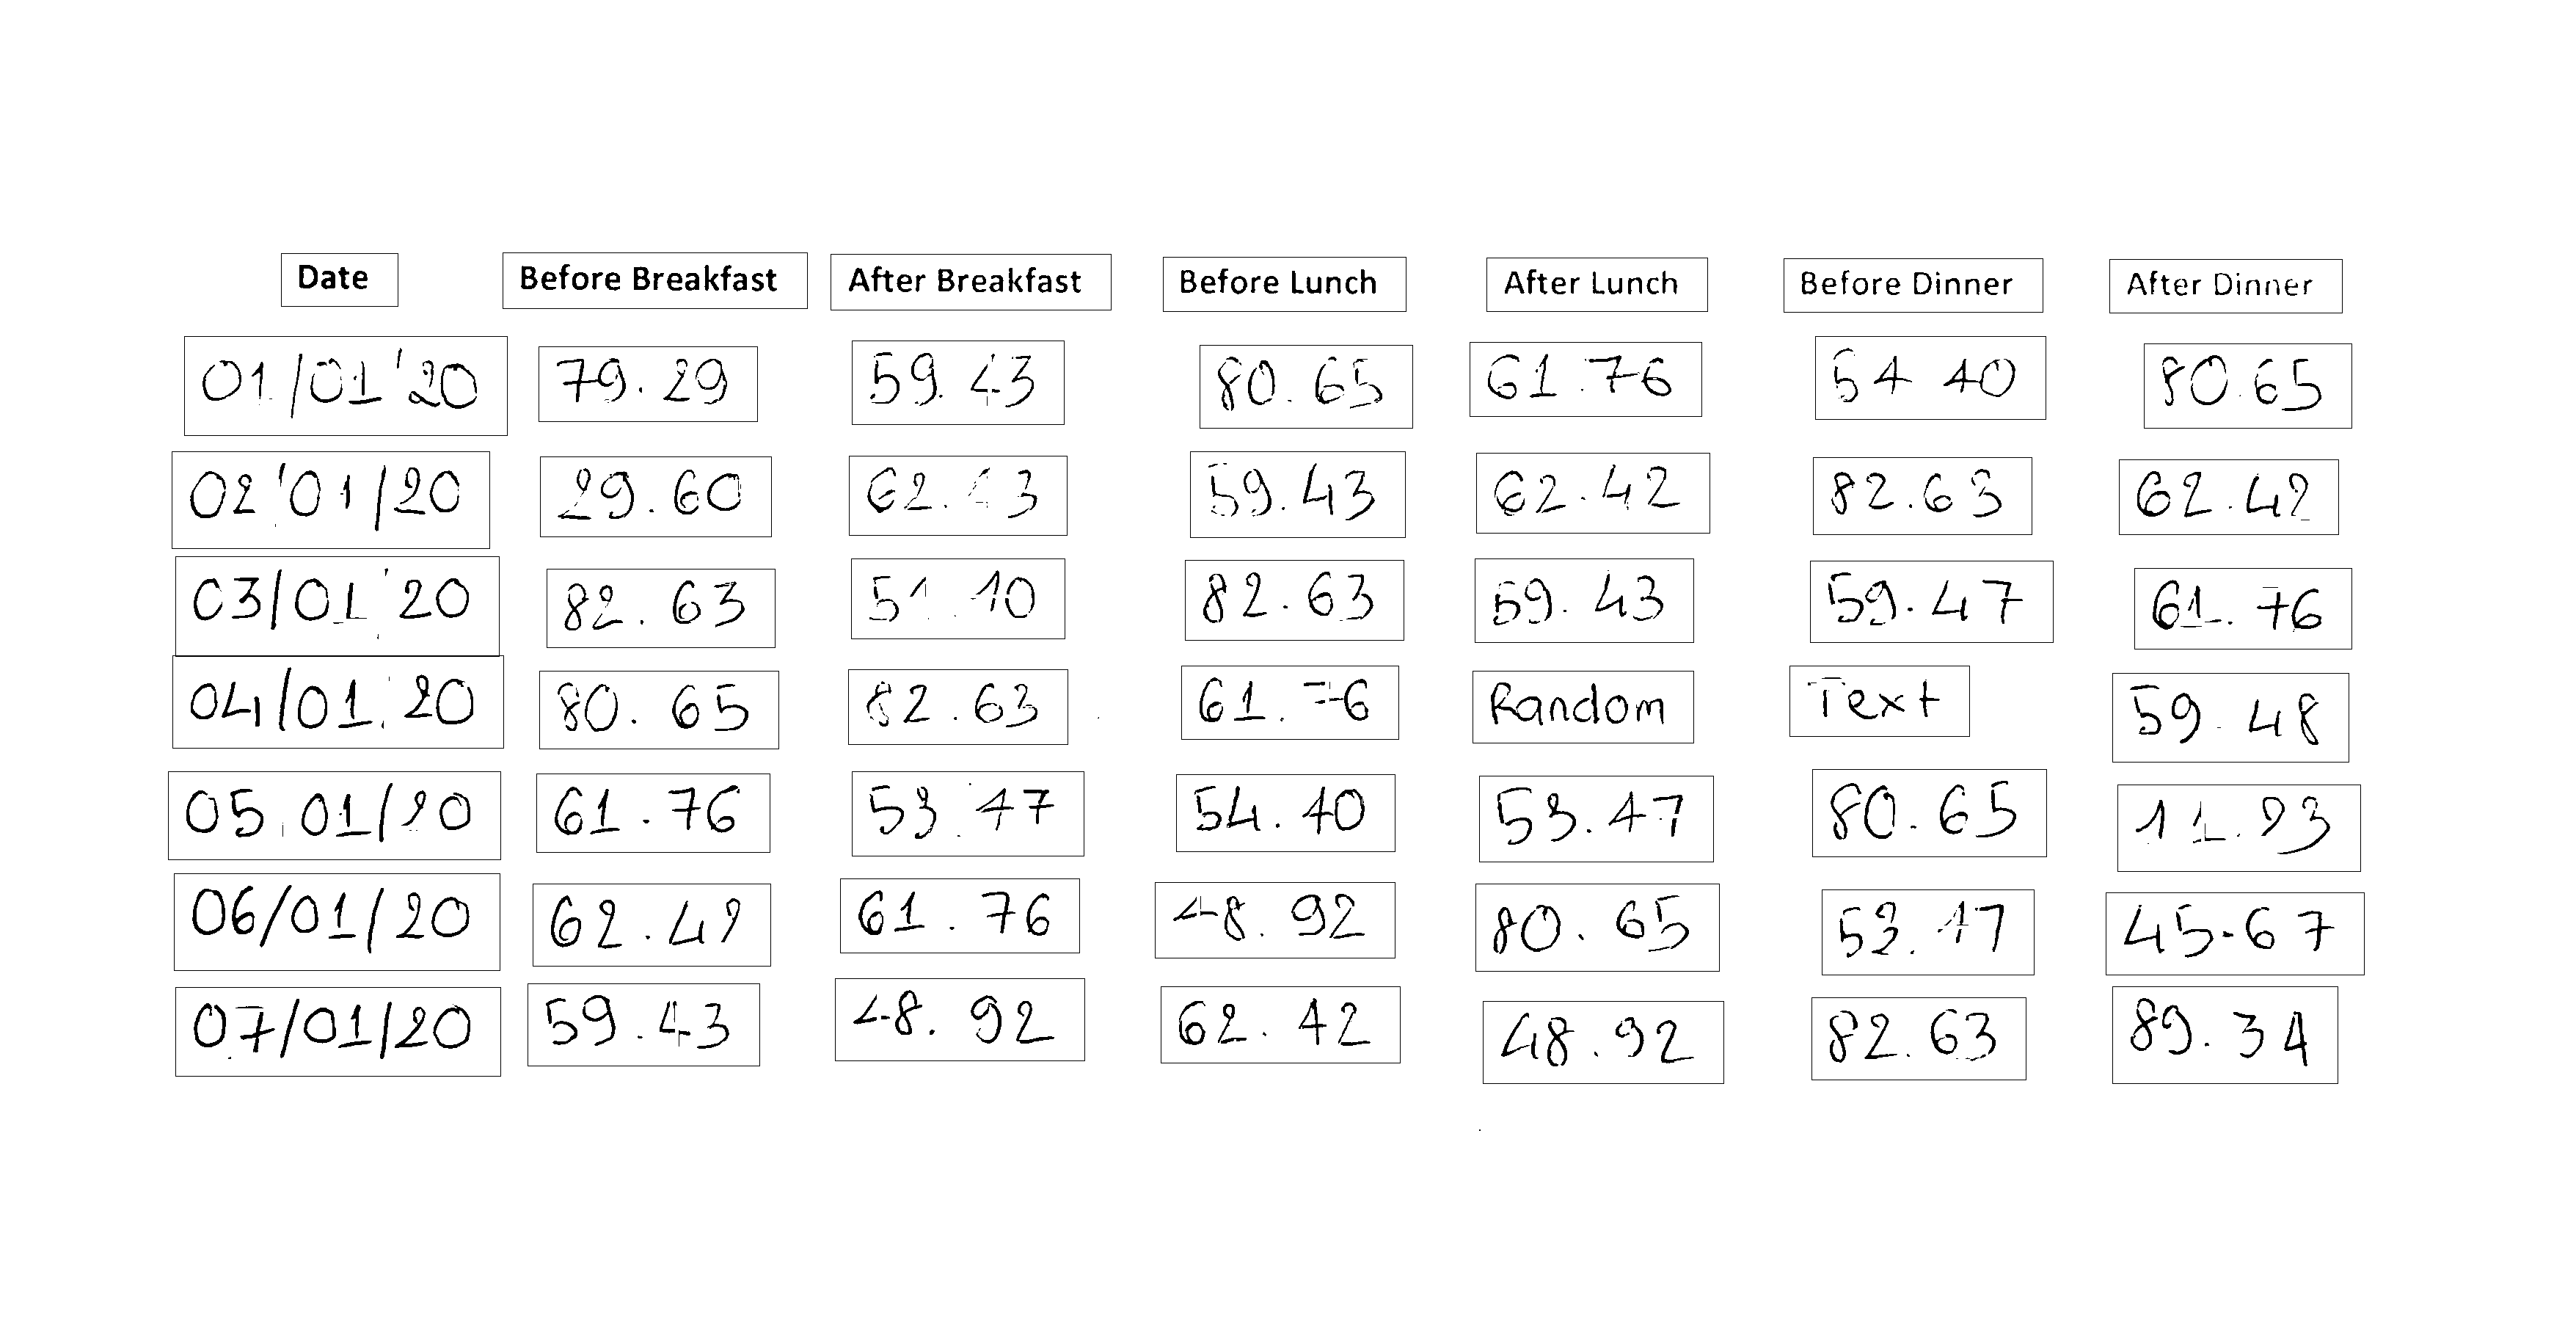 Date Before Breakfast After Breakfast Before Lunch After Lunch Before Dinner After Dinner
01/01/20 79.29 59.43 80.65 61.76 54 40 80.65
02/01/20 29.60 62.43 59.43 62.42 82.63 62.42
03/01/20 82.63 82.63 59.43 59.47 61.76
04/01/20 80.65 82.63 61.76 Random Text 59.48
05/01/20 61.76 53.47 54.40 53.47 80.65 11.93
06/01/20 62.42 61.76 48.92 80.65 53.47 45.67
07/01/20 59.43 48.92 62.42 48.92 82.63 89.34